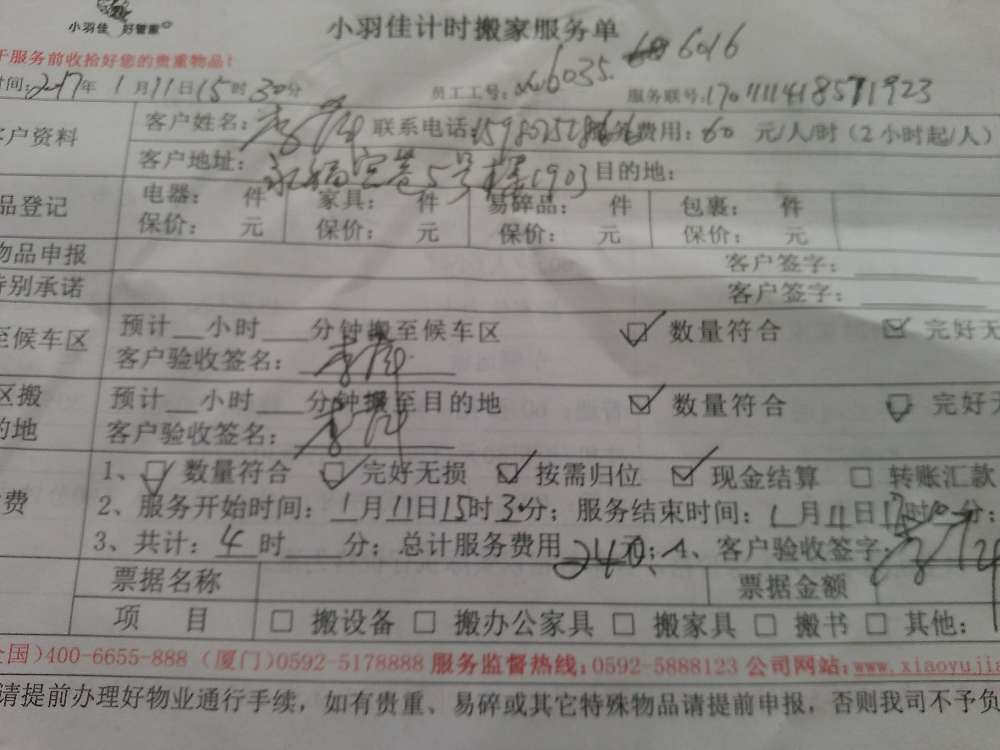 小羽佳 好管家
小羽佳计时搬家服务单
于服务前收拾好您的贵重物品!
时间:2017年 1月11日15时30分 员工工号: 6035 6016 服务联号:
客户资料 客户姓名: 联系电话: 费用:60 元/人/时(2小时起/人)
客户地址: 5号楼1903 目的地:
品登记 电器: 件 家具: 件 易碎品: 件 包裹: 件
保价: 元 保价: 元 保价: 元 保价: 元
物品申报 客户签字:
特别承诺 客户签字:
至候车区 预计__小时___分钟搬至候车区 数量符合 完好无
客户验收签名:
区搬 预计__小时___分钟搬至目的地 数量符合 完好无
的地 客户验收签名:
费 1、数量符合 完好无损 按需归位 现金结算 转账汇款
2、服务开始时间:1月11日15时30分;服务结束时间:1月11日17时 分;
3、共计:4时___分;总计服务费用240元;4、客户验收签字:
票据名称 票据金额
项 目 搬设备 搬办公家具 搬家具 搬书 其他:
全国)400-6655-888 (厦门)0592-5178888 服务监督热线:0592-5888123 公司网站:www.xiaoyujia
请提前办理好物业通行手续,如有贵重、易碎或其它特殊物品请提前申报,否则我司不予负